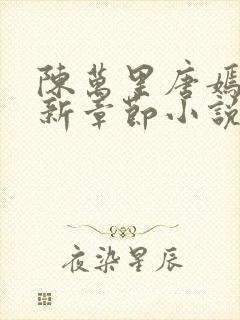 陳萬里唐嫣
新章節小說
夜染星辰